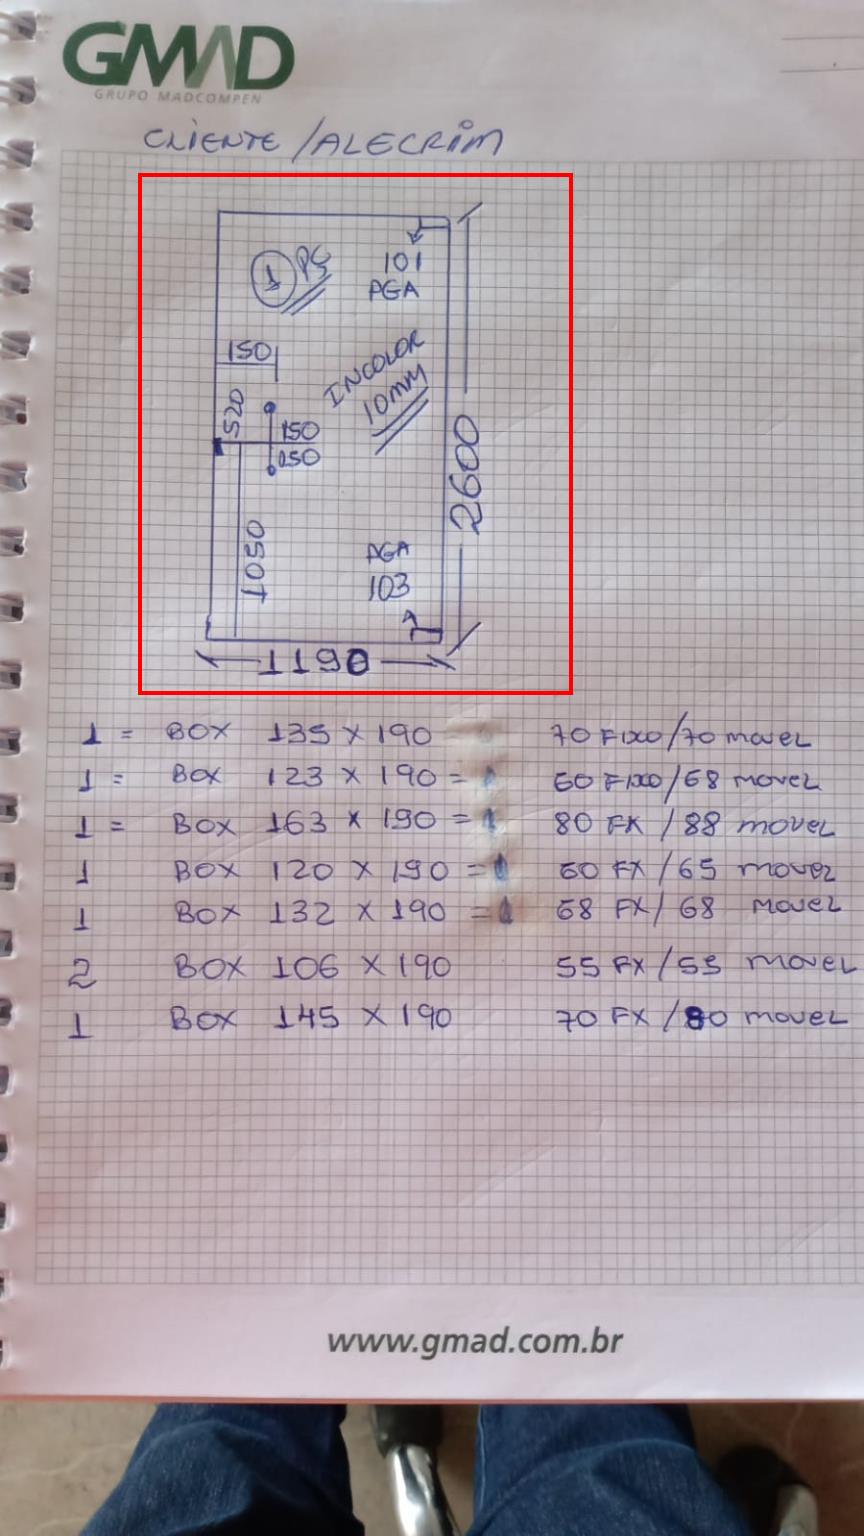 GMAD
GRUPO MADCOMPEN
CLIENTE / ALECRIM
1 PÇ
101
PGA
150
INCOLOR
10MM
520
150
050
2600
1050
PGA
103
1190
1 = BOX 135 x 190 70 FIXO/70 MOVEL
1 = BOX 123 x 190 = 60 FIXO/68 MOVEL
1 = BOX 163 x 190 = 80 FX / 88 MOVEL
1 BOX 120 x 190 = 60 FX / 65 MOVEL
1 BOX 132 x 190 = 68 FX / 68 MOVEL
2 BOX 106 x 190 55 FX / 55 MOVEL
1 BOX 145 x 190 70 FX / 80 MOVEL
www.gmad.com.br